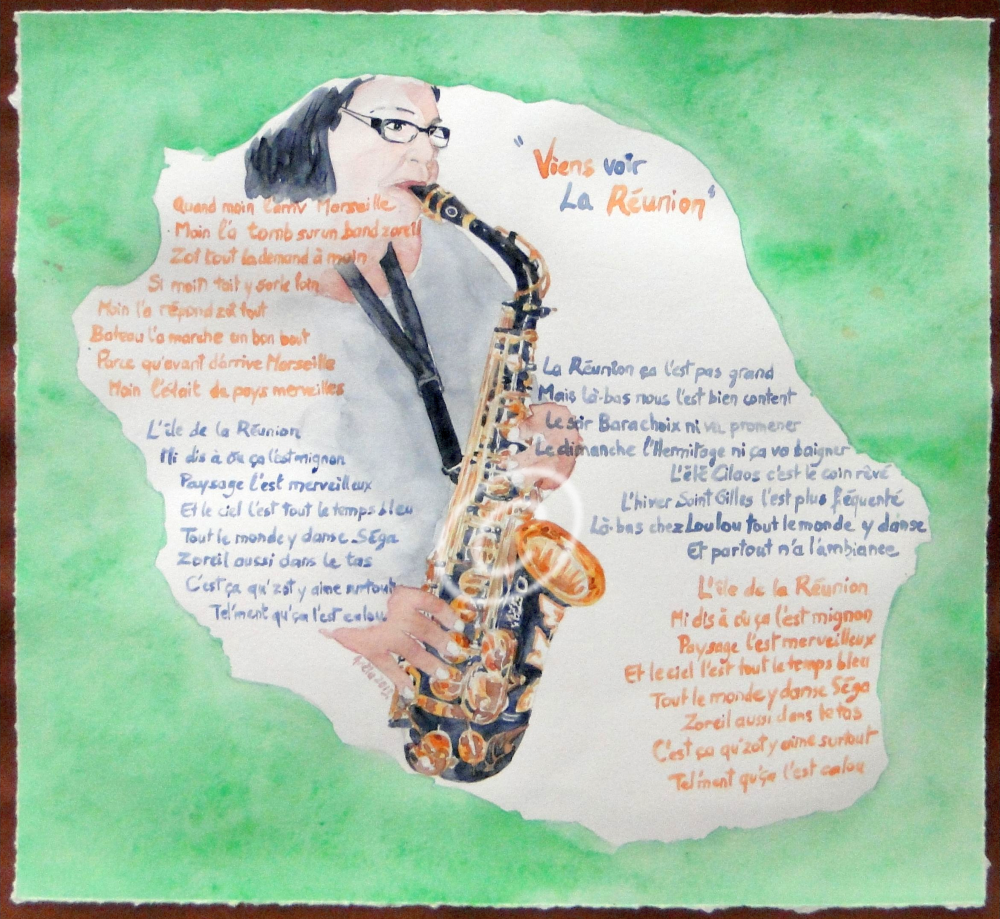 "Viens voir
La Réunion"
Quand moin l'arriv Marseille
Moin l'a tomb sur un band zoreil
Zot tout la demand à moin
Si moin toit y sorte loin
Moin l'a répond zot tout
Bateau l'a marche en bon bout
Parce qu'avant d'arrive Marseille
Moin l'était de pays merveilles
L'île de la Réunion
Mi dis à ou ça l'est mignon
Paysage l'est merveilleux
Et le ciel l'est tout le temps bleu
Tout le monde y danse Séga
Zoreil aussi dans le tas
C'est ça qu'zot y aime surtout
Tel'ment qu'ça l'est calou
La Réunion ça l'est pas grand
Mais là-bas nous l'est bien content
Le soir Barachoix ni va promener
Le dimanche l'Hermitage ni ça va baigner
L'été Cilaos c'est le coin rêvé
L'hiver Saint Gilles l'est plus fréquenté
Là-bas chez Loulou tout le monde y danse
Et partout n'a l'ambiance
L'île de la Réunion
Mi dis à ou ça l'est mignon
Paysage l'est merveilleux
Et le ciel l'est tout le temps bleu
Tout le monde y danse Séga
Zoreil aussi dans le tas
C'est ça qu'zot y aime surtout
Tel'ment qu'ça l'est calou